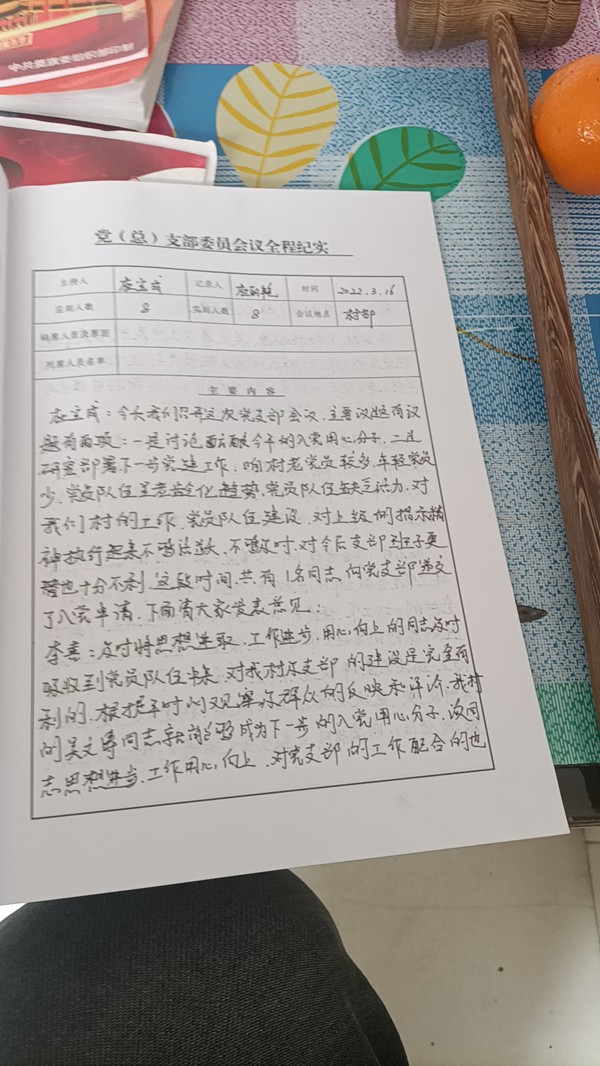 党（总）支部委员会议全程纪实
主持人 记录人 时间 2022.3.16
应到人数 8 实到人数 8 会议地点 村部
缺席人员及原因
列席人员名单
主要内容
今天我们召开这次党支部会议，主要议题有议
题有两项：一是讨论酝酿今年的入党用心分子，二是
研究部署下一步党建工作，咱村老党员较多，年轻党员
少，党员队伍呈老龄化趋势，党员队伍缺乏活力，对
我们村的工作，党员队伍建设，对上级的指示精
神执行起来不够活跃，不够及时，对今后支部班子更
替也十分不利，这段时间，共有1名同志向党支部递交
了入党申请，下面请大家发表意见：
李喜：及时将思想进取，工作进步，用心向上的同志及时
吸收到党员队伍中来，对我村及支部的建设是完全有
利的，根据平时的观察及群众的反映和评论，我村
的吴文 同志 成为下一步的入党用心分子，该同
志思想进步，工作用心，向上，对党支部的工作配合的也